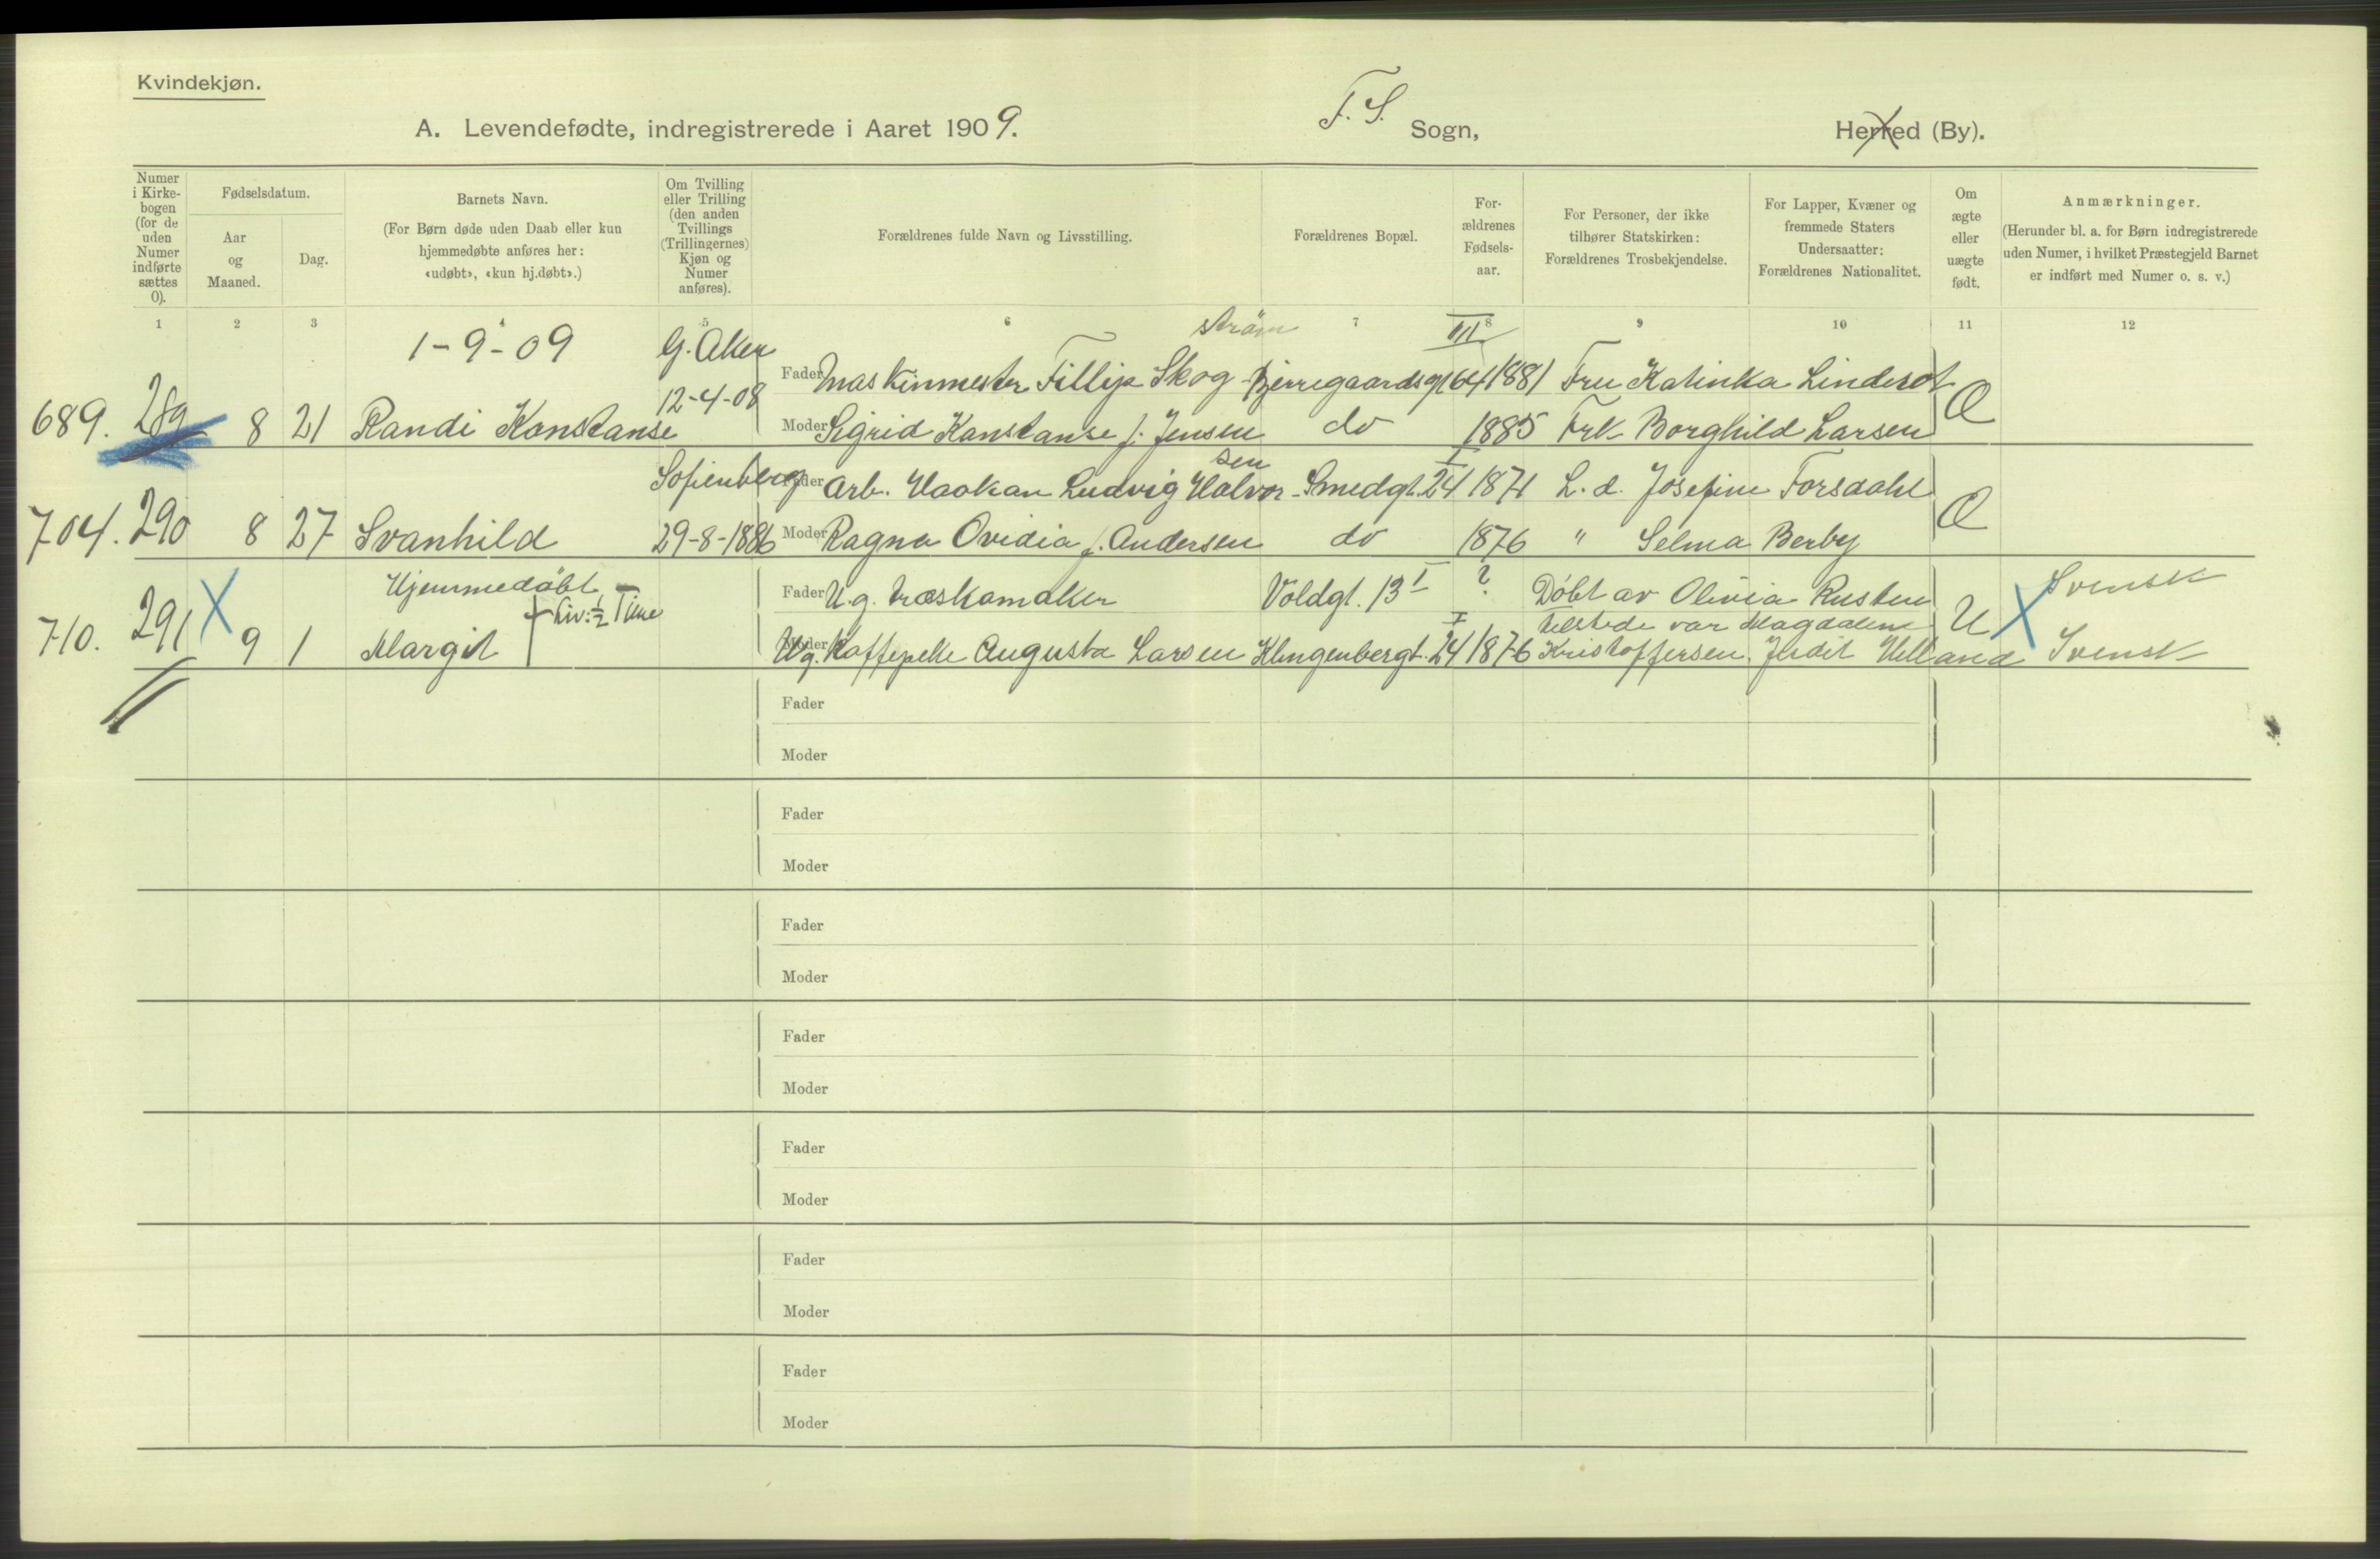 Kvindekjøn.
A. Levendefødte, indregistrerede i Aaret 1909.
F. S. Sogn,
Herred (By).
Numer i Kirke-bogen (for de uden Numer indførte sættes 0).
Fødselsdatum.
Aar og Maaned.
Dag.
Barnets Navn.
(For Børn døde uden Daab eller kun hjemmedøbte anføres her: «udøbt», «kun hj.døbt».)
Om Tvilling eller Trilling (den anden Tvillings (Trillingernes) Kjøn og Numer anføres).
Forældrenes fulde Navn og Livsstilling.
Forældrenes Bopæl.
For-ældrenes Fødsels-aar.
For Personer, der ikke tilhører Statskirken: Forældrenes Trosbekjendelse.
For Lapper, Kvæner og fremmede Staters Undersaatter: Forældrenes Nationalitet.
Om ægte eller uægte født.
Anmærkninger.
(Herunder bl. a. for Børn indregistrerede uden Numer, i hvilket Præstegjeld Barnet er indført med Numer o. s. v.)
1 2 3 4 5 6 7 8 9 10 11 12
1-9-09 G. Aker strøm III
Fader Maskinmester Fillip Skog - Bjerregaardsgt 64 1881 Fru Katinka Linderot
689. 289 8 21 Randi Konstanse 12-4-08 Moder Sigrid Konstanse f. Jensen do 1885 Frk Borghild Larsen Æ
Sofienberg Fader Arb. Haakan Ludvig Halvorsen - Smedgt. 24 I 1871 L. d. Josefine Forsdahl
704. 290 8 27 Svanhild 29-8-1886 Moder Ragna Ovidia f. Andersen do 1876 " Selma Berby Æ
Hjemmedøbt Fader U.g. træskomaker Voldgt. 13 I ? Døbt av Olivia Rusten Svensk
† Liv: ½ Time tilstede var Magdalene
710. 291 X 9 1 Margit Moder Ug. Kaffepike Augusta Larsen Klingenberggt. 24 I 1876 Kristoffersen. Judit Helland U X Svensk
Fader
Moder
Fader
Moder
Fader
Moder
Fader
Moder
Fader
Moder
Fader
Moder
Fader
Moder